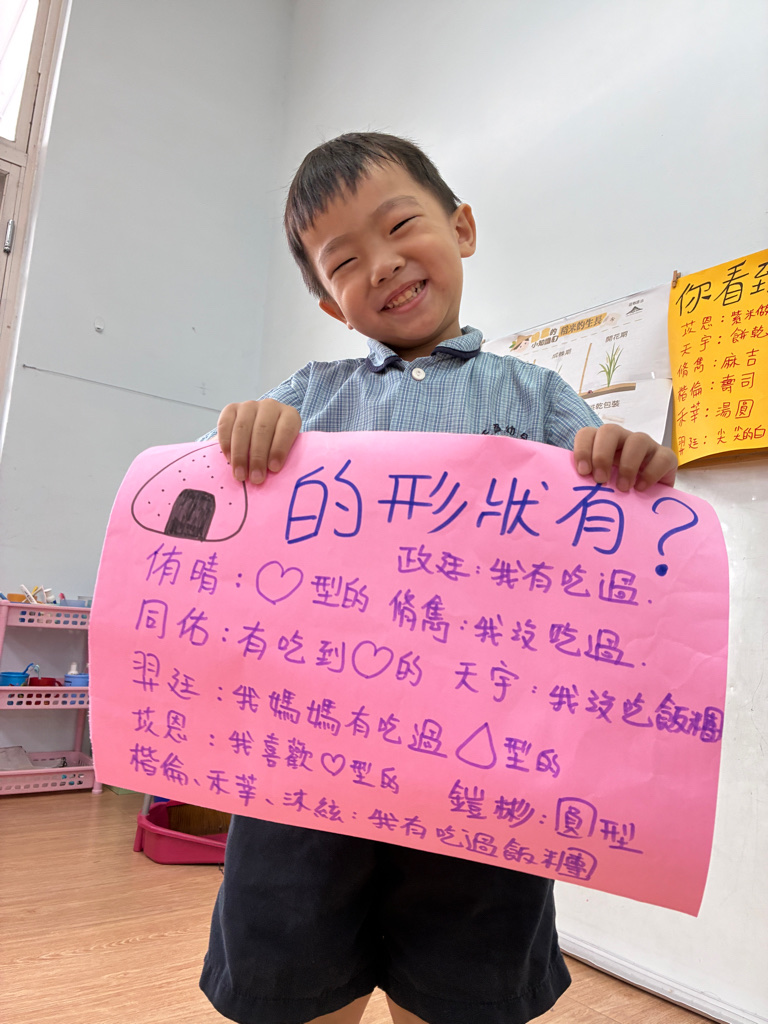 的形狀有？
侑晴：♡型的
政廷：我有吃過.
同佑：有吃到♡的
脩雋：我沒吃過.
羿廷：我媽媽有吃過△型的
天宇：我沒吃飯糰
苡恩：我喜歡♡型的
鎧彬：圓型
楷倫、禾莘、沐絃：我有吃過飯糰
的
小知識幻
糯米的生長
成株期
開花期
乾包裝
你看到
苡恩：紫米做
天宇：餅乾
脩雋：麻吉
楷倫：壽司
禾莘：湯圓
羿廷：尖尖的白